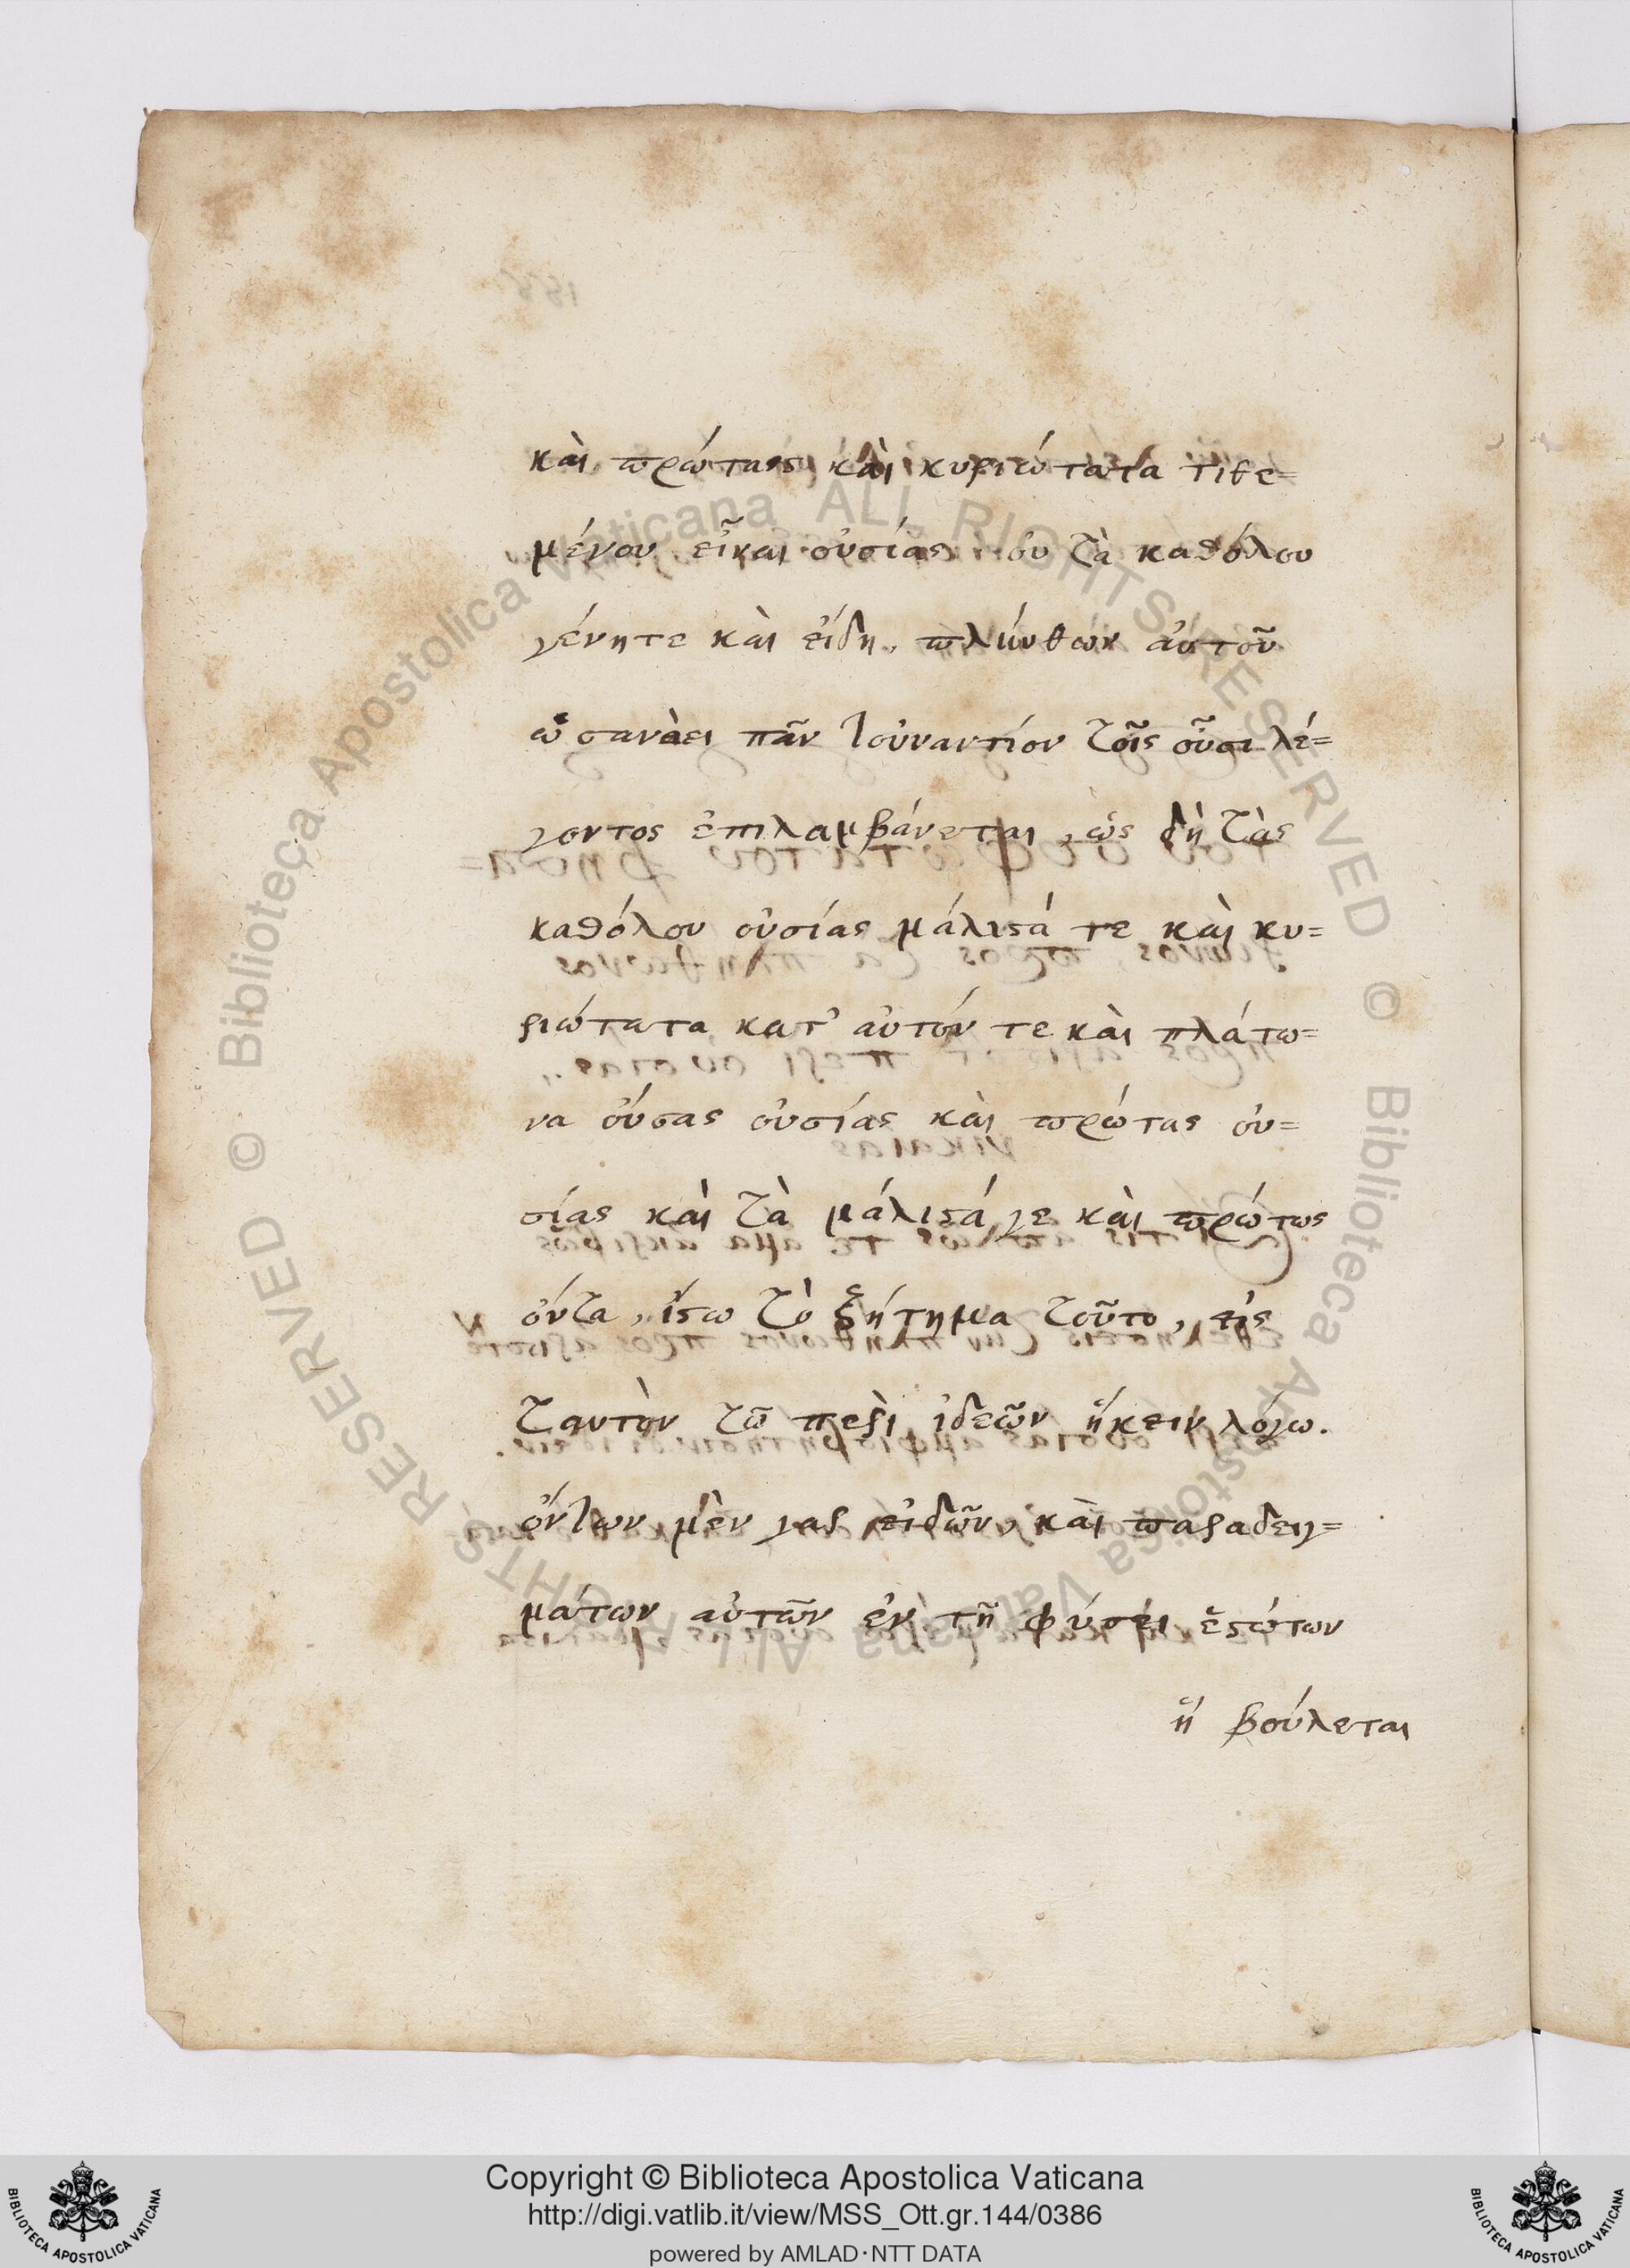 καὶ πρώτας καὶ κυριώτατα τιθε=
μένου εἶναι οὐσίας· οὐ τὰ καθόλου
γένητε καὶ εἴδη, πλήθων αὐτοῦ
παν τοὐναντίον τοῖς οὖσι λέ=
γοντος ἐπιλαμβάνεται, ὡς δὴ τὰς
καθόλου οὐσίας μάλιστά τε καὶ κυ=
ριώτατα κατ' αὐτόν τε καὶ πλάτω=
να οὔσας οὐσίας καὶ πρώτας οὐ=
σίας καὶ τὰ μάλιστά γε καὶ πρώτως
ὄντα, ἴστω τὸ ζήτημα τοῦτο, εἰς
ταυτὸν τῶ περὶ ἰδεῶν ἥκειν λόγω.
ὄντων μὲν γαρ εἰδῶν, καὶ παραδειγ=
μάτων αὐτῶν ἐν τῆ φύσει ἑστώτων
ἥ βούλεται
Biblioteca Apostolica Vaticana ALL RIGHTS RESERVED ©
Biblioteca Apostolica Vaticana ALL RIGHTS RESERVED ©
Copyright © Biblioteca Apostolica Vaticana
http://digi.vatlib.it/view/MSS_Ott.gr.144/0386
powered by AMLAD·NTT DATA
BIBLIOTECA APOSTOLICA VATICANA
BIBLIOTECA APOSTOLICA VATICANA